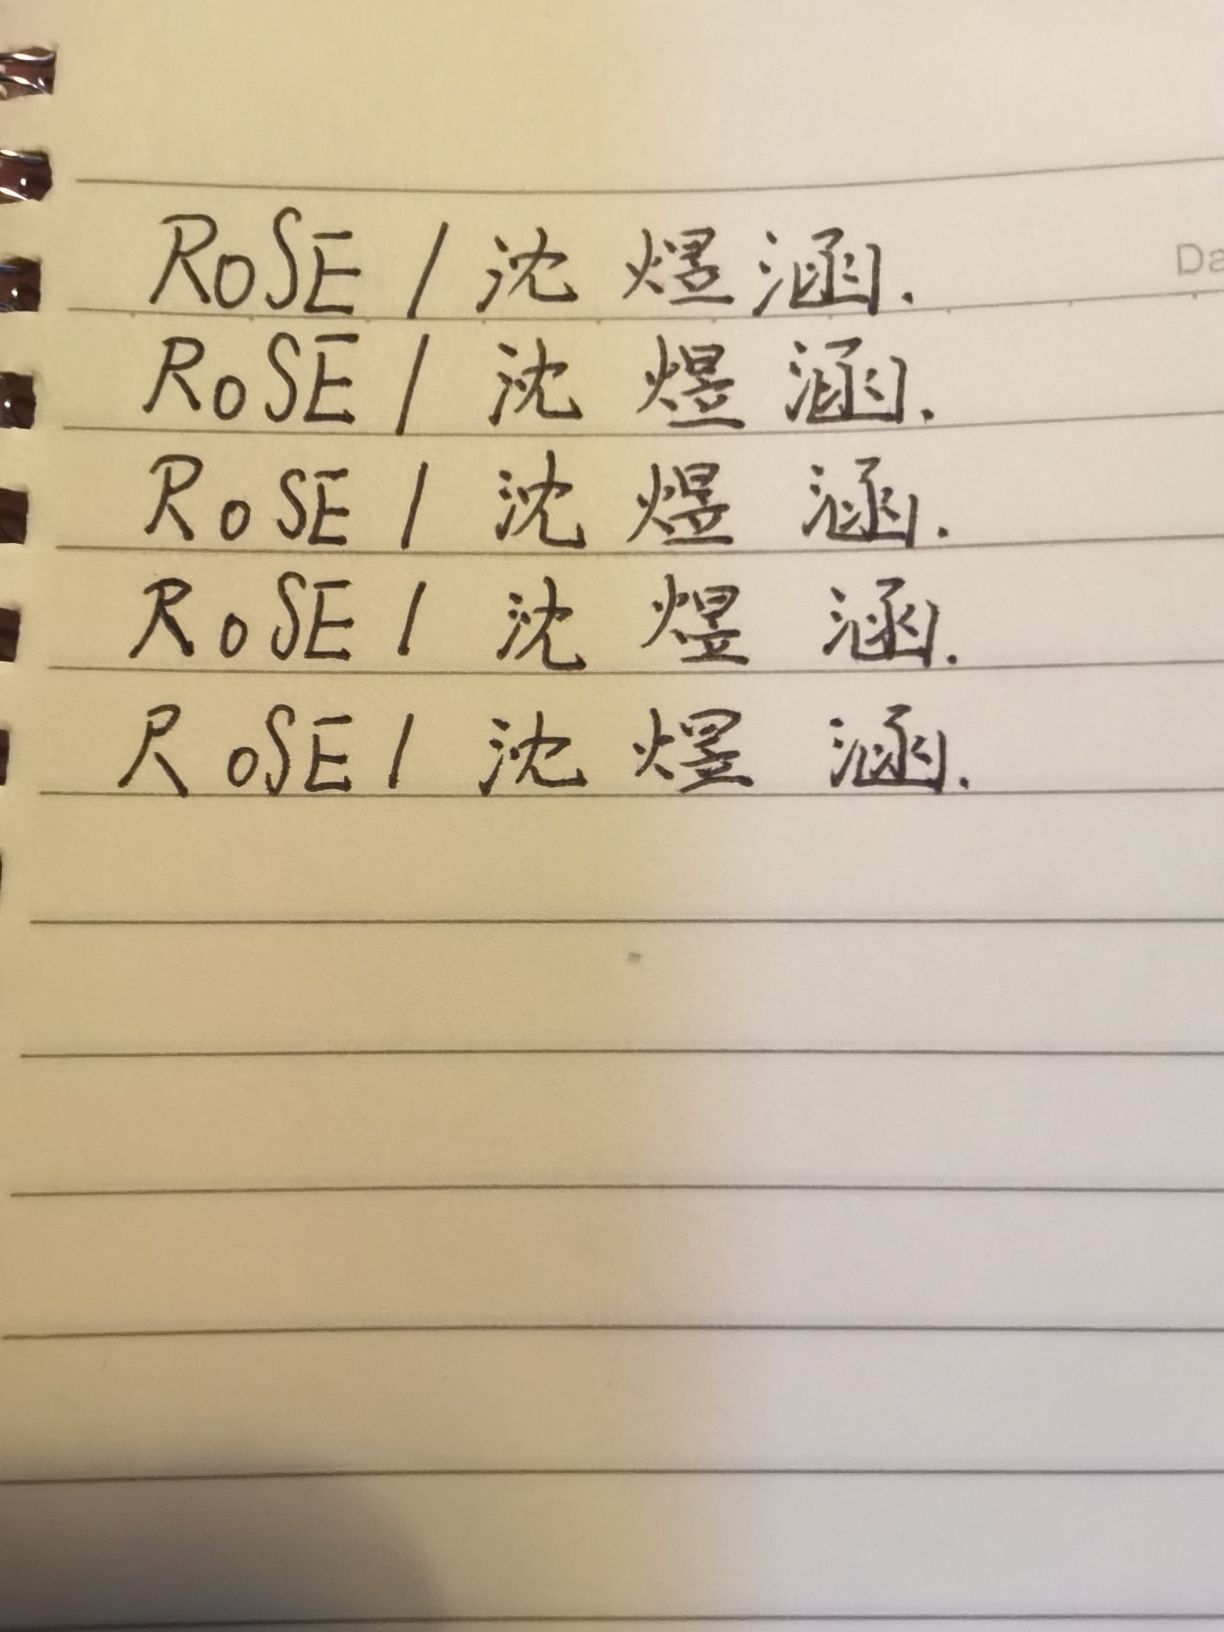 RoSE / 沈煜涵.
Da
RoSE / 沈煜涵.
RoSE / 沈煜涵.
RoSE / 沈煜涵.
RoSE / 沈煜涵.